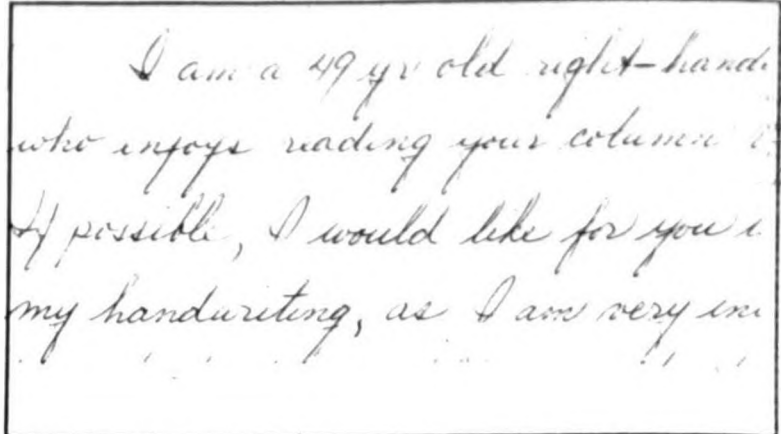 I am a 49 yr old right-hand
who enjoys reading your column
If possible, I would like for you
my handwriting, as I am very